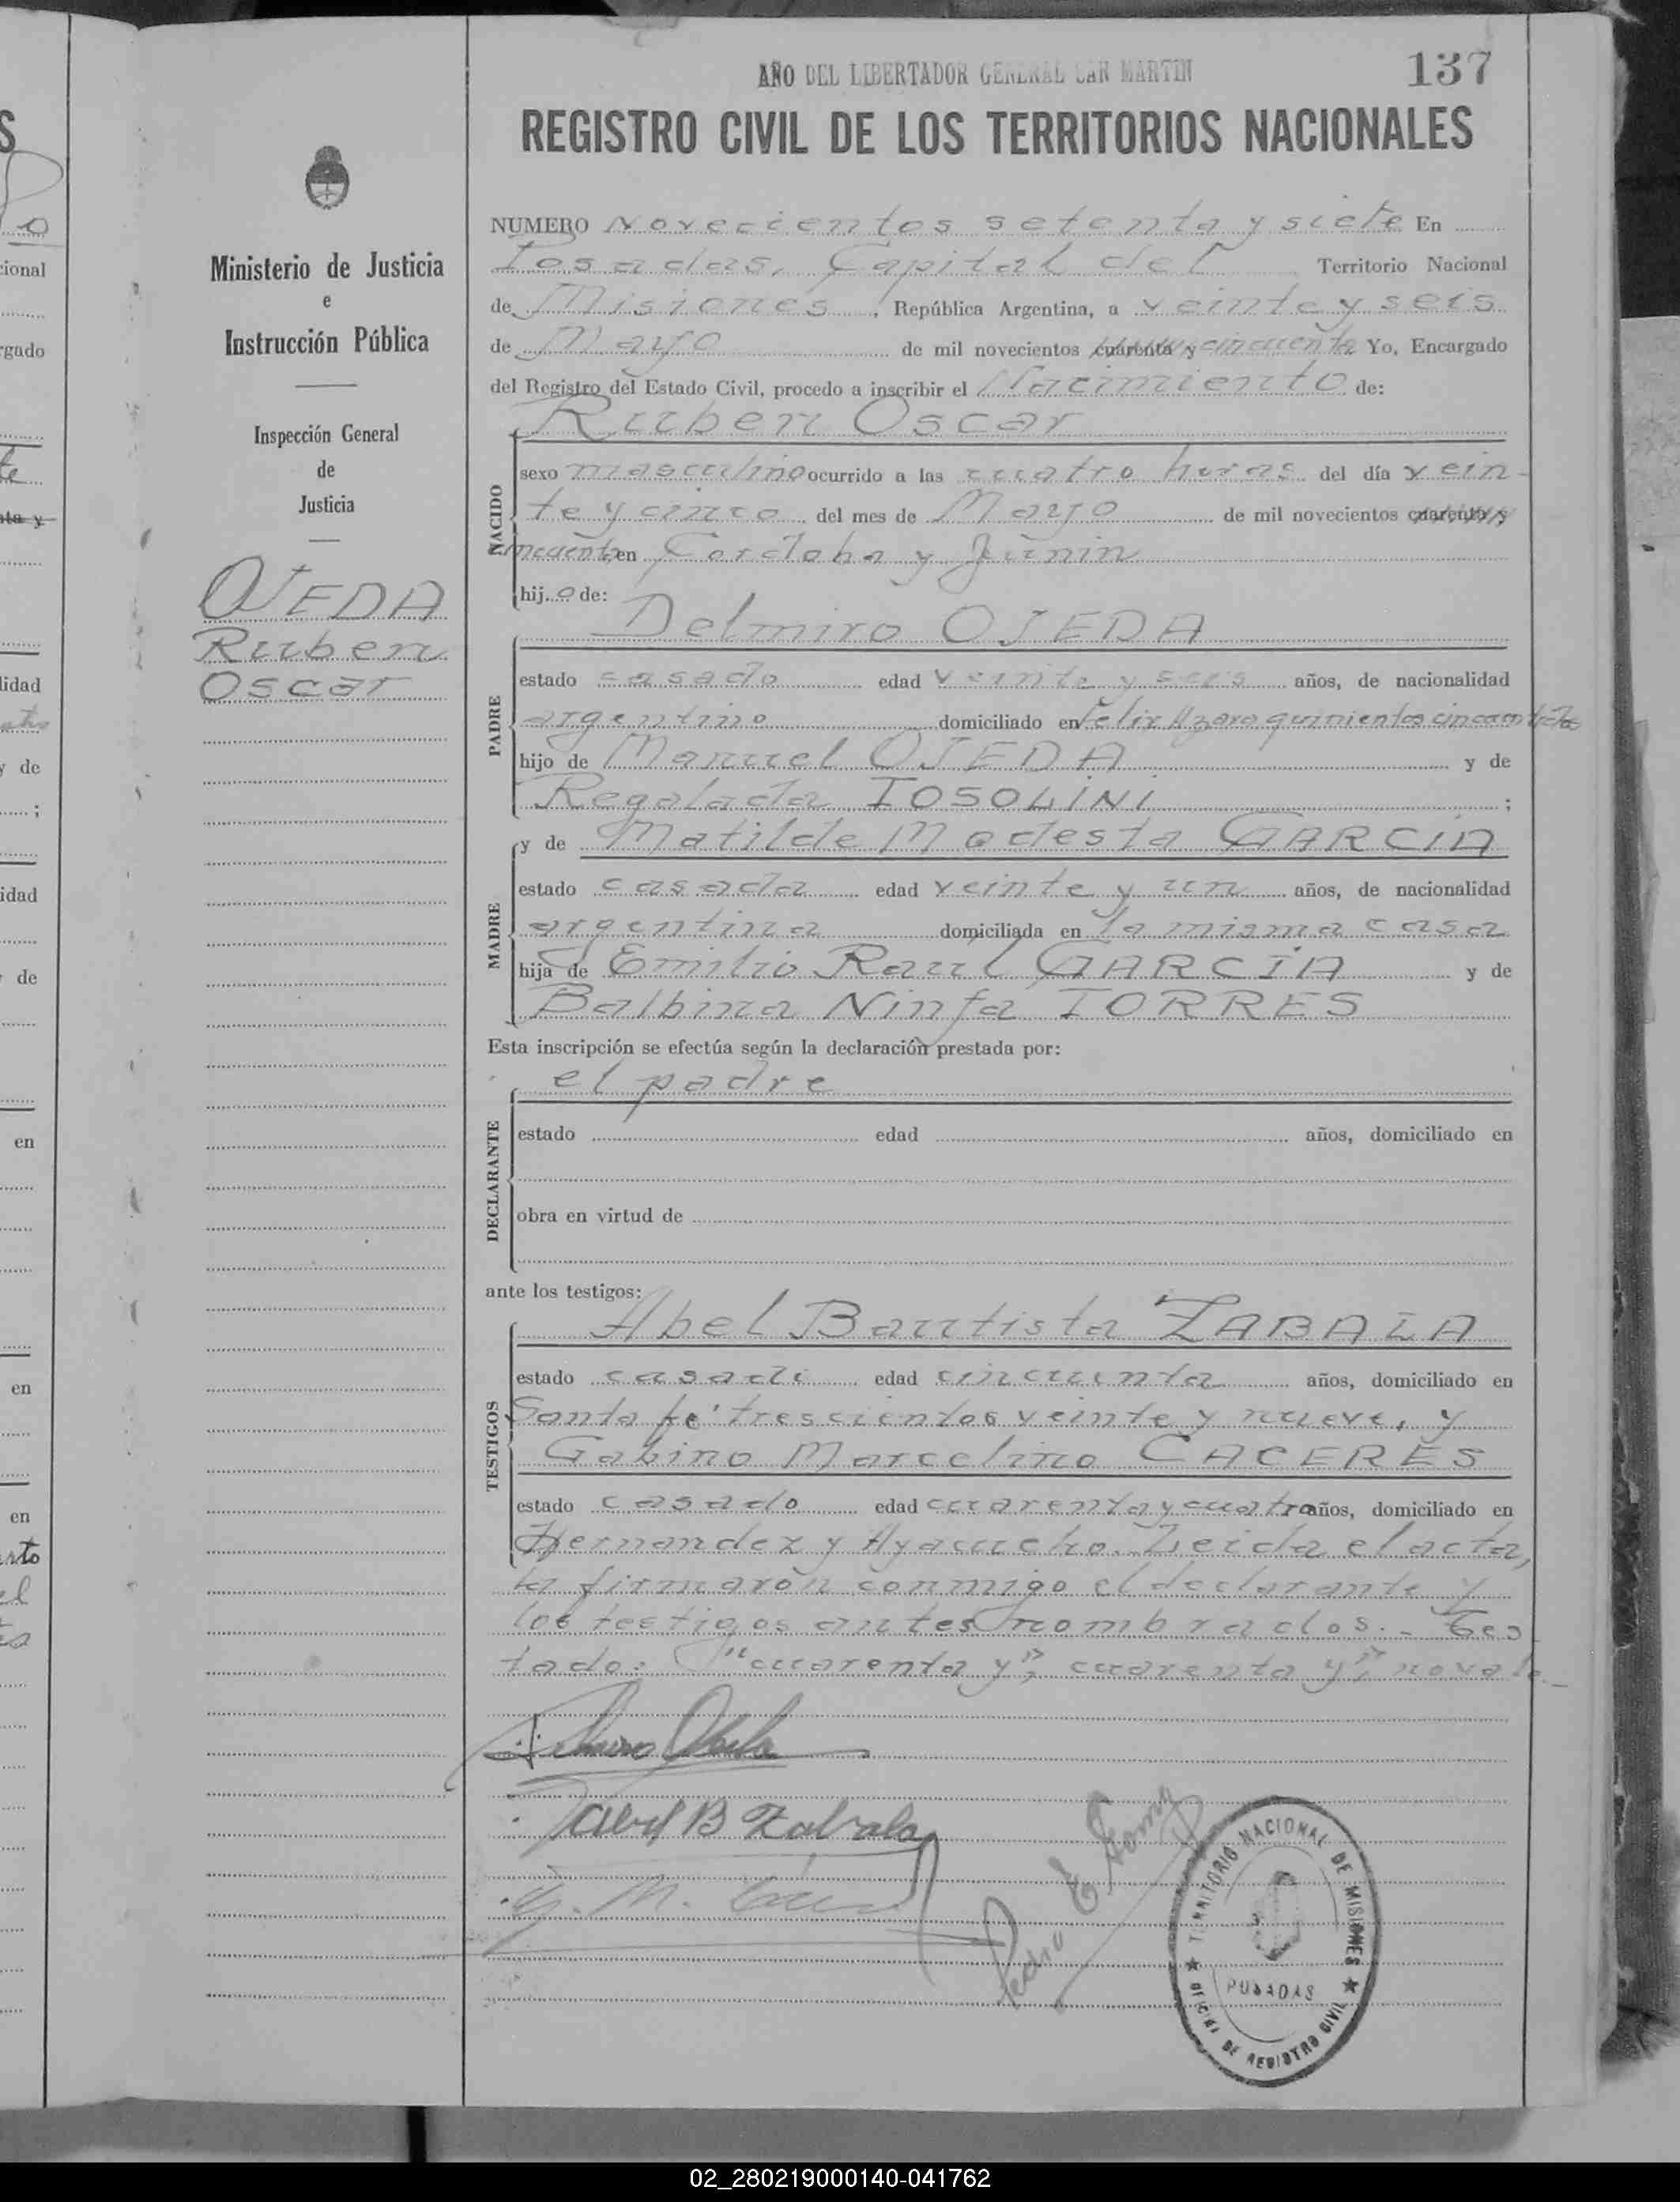 AÑO DEL LIBERTADOR GENERAL SAN MARTIN
137
REGISTRO CIVIL DE LOS TERRITORIOS NACIONALES
Ministerio de Justicia
e
Instrucción Pública
Inspección General
de
Justicia
OJEDA
Ruben
Oscar
NUMERO Novecientos setenta y siete En
Posadas, Capital del Territorio Nacional
de Misiones, República Argentina, a veinte y seis
de Mayo de mil novecientos cuarenta y cincuenta Yo, Encargado
del Registro del Estado Civil, procedo a inscribir el Nacimiento de:
Ruben Oscar
NACIDO
sexo masculino ocurrido a las cuatro horas del día vein-
te y cinco del mes de Mayo de mil novecientos cuarenta y
cincuenta en Cordoba y Junin
hijo de:
Delmiro OJEDA
PADRE
estado casado edad veinte y seis años, de nacionalidad
argentino domiciliado en Felix Azara quinientos
hijo de Manuel OJEDA y de
Regalada TOSOLINI ;
y de Matilde Modesta GARCIA
MADRE
estado casada edad veinte y un años, de nacionalidad
argentina domiciliada en la misma casa
hija de Emilio Raul GARCIA y de
Balbina Ninfa TORRES
Esta inscripción se efectúa según la declaración prestada por:
el padre
DECLARANTE
estado edad años, domiciliado en
obra en virtud de
ante los testigos:
Abel Bautista ZABALA
TESTIGOS
estado casado edad cincuenta años, domiciliado en
Santa fe trescientos veinte y nueve, y
Gabino Marcelino CACERES
estado casado edad cuarenta y cuatro años, domiciliado en
Hernandez y Ayacucho. Leida el acta,
la firmaron conmigo el declarante y
los testigos antes nombrados.- Tes
tado: "cuarenta y", cuarenta y", no vale.-
Abel B Zabala
G. M.
Pedro E
TERRITORIO NACIONAL DE MISIONES
POSADAS
OFICINA DE REGISTRO CIVIL
02_280219000140-041762